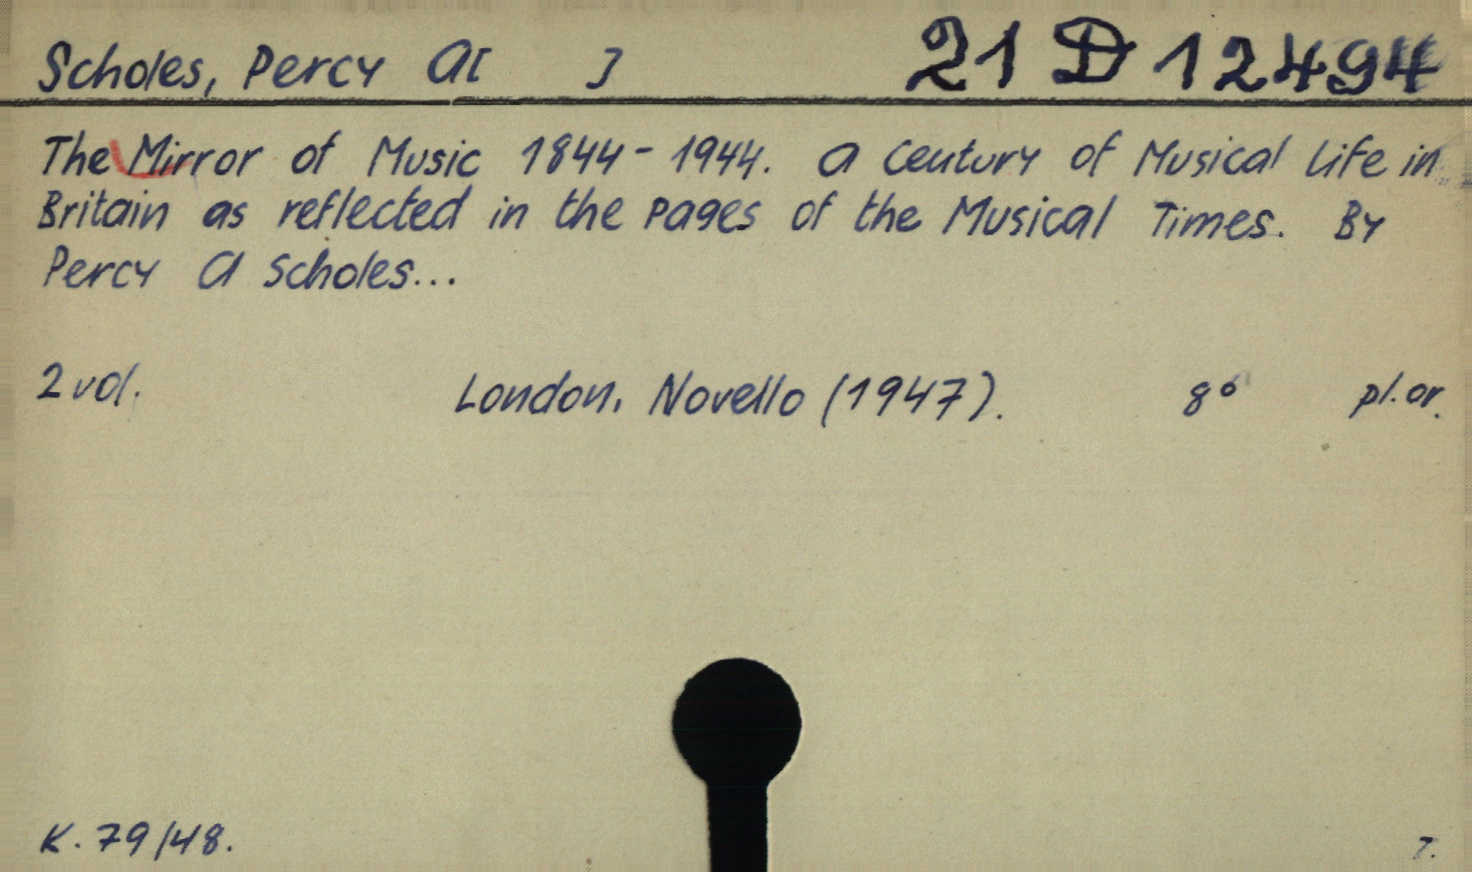 Scholes, Percy A[ ] 21 D 12494
The Mirror of Music 1844 - 1944. A Century of Musical Life in
Britain as reflected in the pages of the Musical Times. By
Percy A Scholes...
2 vol. London, Novello (1947). 8° pl. or.
K. 79/48. 7.